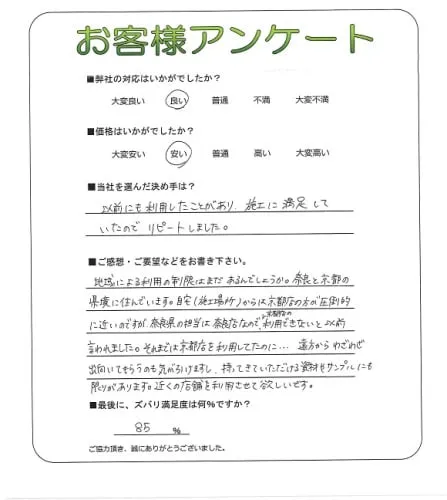 お客様アンケート
■弊社の対応はいかがでしたか?
大変良い 良い 普通 不満 大変不満
■価格はいかがでしたか?
大変安い 安い 普通 高い 大変高い
■当社を選んだ決め手は?
以前にも利用したことがあり、施工に満足して
いたので リピートしました。
■ご感想・ご要望などをお書き下さい。
地域による利用の制限はまだあるんでしょうか。奈良と京都の
県境に住んでいます。自宅(施工場所)からは京都店の方が圧倒的
に近いのですが、奈良県の担当は奈良店なので、京都店の利用できないと以前
言われました。それまでは京都店を利用してたのに… 遠方から わざわざ
出向いてもらうのも気がひけますし、持ってきていただける資材やサンプルにも
限りがあります。近くの店舗を利用させて欲しいです。
■最後に、ズバリ満足度は何%ですか?
85 %
ご協力頂き、誠にありがとうございました。